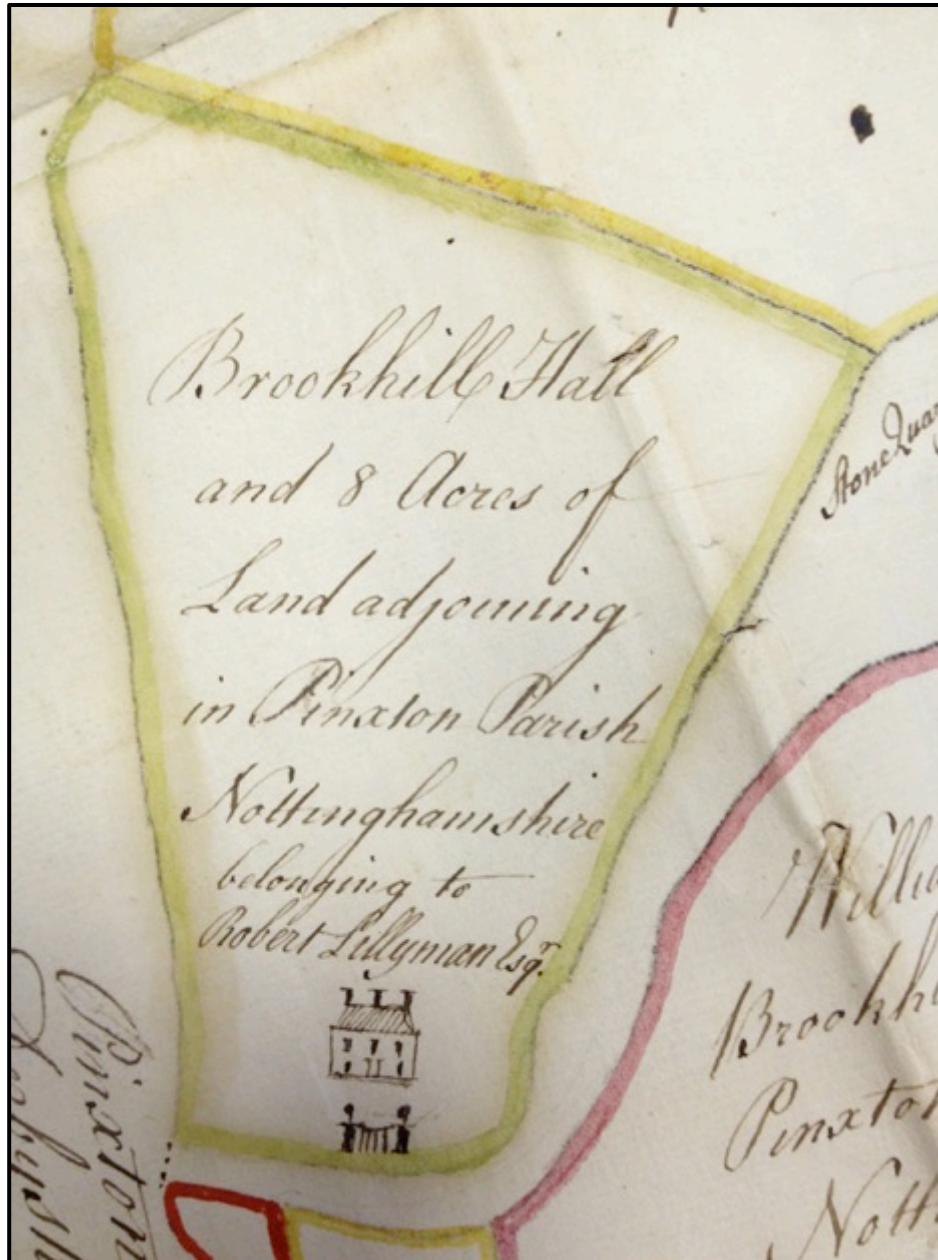 Brookhill Hall
and 8 Acres of
Land adjoining
in Pinxton Parish
Nottinghamshire
belonging to
Robert Lillyman Esqr.
Stone Quar
Willia
Brookhi
Pinxton
Nott
Pinxton